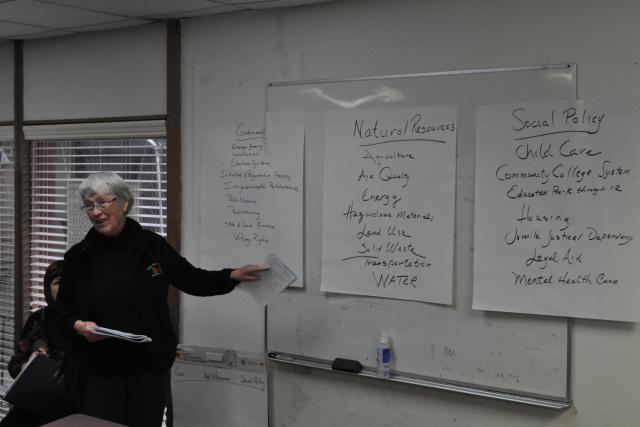 Government
Constitution
Election Systems
Initiative & Referendum Process
Intergovernmental Relationships
Public Libraries
Redistricting
State & Local Finances
Voting Rights
Natural Resources
Agriculture
Air Quality
Energy
Hazardous Materials
Land Use
Solid Waste
Transportation
WATER
Social Policy
Child Care
Community College System
Education Pre-K through 12
Housing
Juvenile Justice/Dependency
Legal Aid
Mental Health Care
Social Policy